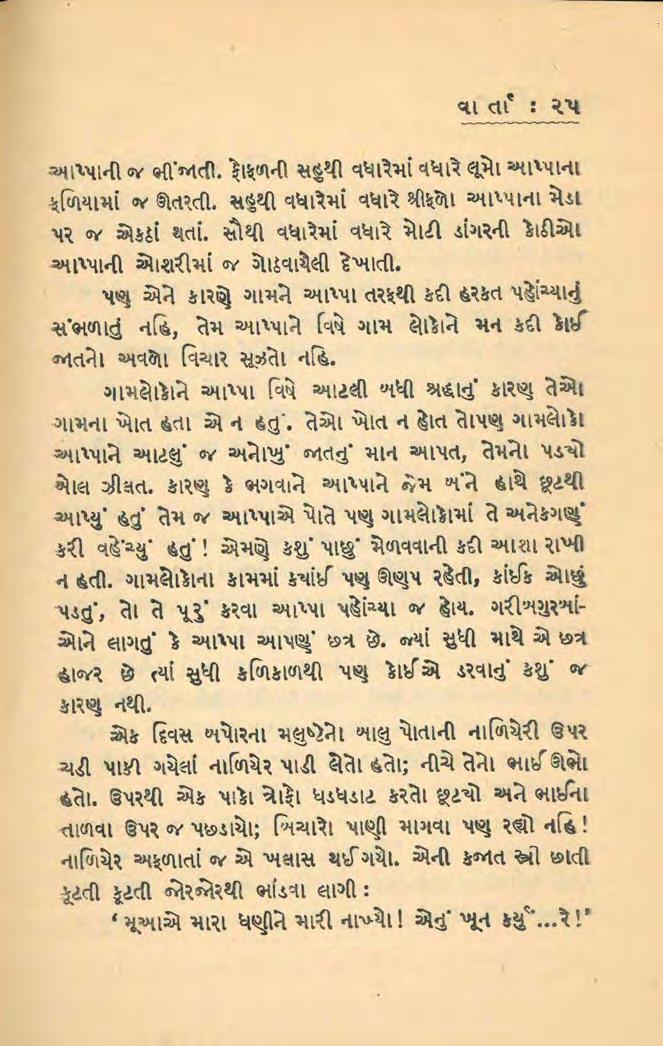 વાર્તા : ૨૫
આપ્પાની જ ભીંજાતી. ફોફળની સહુથી વધારેમાં વધારે લૂમો આપ્પાના
ફળિયામાં જ ઊતરતી. સહુથી વધારેમાં વધારે શ્રીફળો આપ્પાના મેડા
પર જ એકઠાં થતાં. સૌથી વધારેમાં વધારે મોટી ડાંગરની કોઠીઓ
આપ્પાની ઓશરીમાં જ ગોઠવાયેલી દેખાતી.
પણ એને કારણે ગામને આપ્પા તરફથી કદી હરકત પહોંચ્યાનું
સંભળાતું નહિ, તેમ આપ્પાને વિષે ગામ લોકોને મન કદી કોઈ
જાતનો અવળો વિચાર સૂઝતો નહિ.
ગામલોકોને આપ્પા વિષે આટલી બધી શ્રદ્ધાનું કારણ તેઓ
ગામના ખોત હતા એ ન હતું. તેઓ ખોત ન હોત તોપણ ગામલોકો
આપ્પાને આટલું જ અનોખું જાતનું માન આપત, તેમનો પડ્યો
બોલ ઝીલત. કારણ કે ભગવાને આપ્પાને જેમ બંને હાથે છૂટથી
આપ્યું હતું તેમ જ આપ્પાએ પોતે પણ ગામલોકોમાં તે અનેકગણું
કરી વહેંચ્યું હતું! એમણે કશું પાછું મેળવવાની કદી આશા રાખી
ન હતી. ગામલોકોના કામમાં ક્યાંઈ પણ ઊણપ રહેતી, કાંઈક ઓછું
પડતું, તો તે પૂરું કરવા આપ્પા પહોંચ્યા જ હોય. ગરીબગુરબાં-
ઓને લાગતું કે આપ્પા આપણું છત્ર છે. જ્યાં સુધી માથે એ છત્ર
હાજર છે ત્યાં સુધી કળિકાળથી પણ કોઈએ ડરવાનું કશું જ
કારણ નથી.
એક દિવસ બપોરના મલુષ્ટેનો બાલુ પોતાની નાળિયેરી ઉપર
ચડી પાકી ગયેલાં નાળિયેર પાડી લેતો હતો; નીચે તેનો ભાઈ ઊભો
હતો. ઉપરથી એક પાકો ત્રોફો ધડધડાટ કરતો છૂટ્યો અને ભાઈના
તાળવા ઉપર જ પછડાયો; બિચારો પાણી માગવા પણ રહ્યો નહિ!
નાળિયેર અફળાતાં જ એ ખલાસ થઈ ગયો. એની કજાત સ્ત્રી છાતી
કૂટતી કૂટતી જોરજોરથી ભાંડવા લાગી :
‘મૂઆએ મારા ધણીને મારી નાખ્યો! એનું ખૂન કર્યું...રે!’